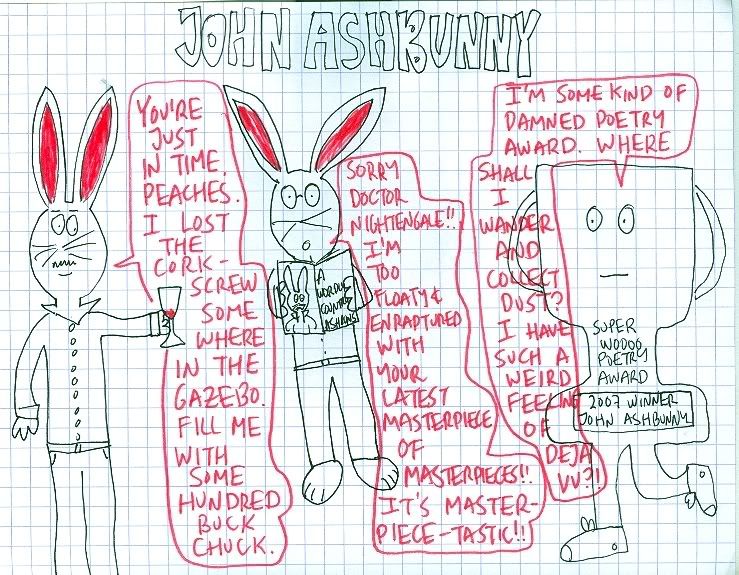 JOHN ASHBUNNY
YOU'RE
JUST
IN TIME,
PEACHES.
I LOST
THE
CORK-
SCREW
SOME
WHERE
IN THE
GAZEBO.
FILL ME
WITH
SOME
HUNDRED
BUCK
CHUCK.
SORRY
DOCTOR
NIGHTENGALE!!
I'M
TOO
FLOATY &
ENRAPTURED
WITH
YOUR
LATEST
MASTERPIECE
OF
MASTERPIECES!!
IT'S MASTER-
PIECE-TASTIC!!
A
COUNTRY
I'M SOME KIND OF
DAMNED POETRY
AWARD. WHERE
SHALL
I
WANDER
AND
COLLECT
DUST?
I HAVE
SUCH A
WEIRD
FEELING
OF
DEJA
VU?!
SUPER
WODOO
POETRY
AWARD
2007 WINNER
JOHN ASHBUNNY